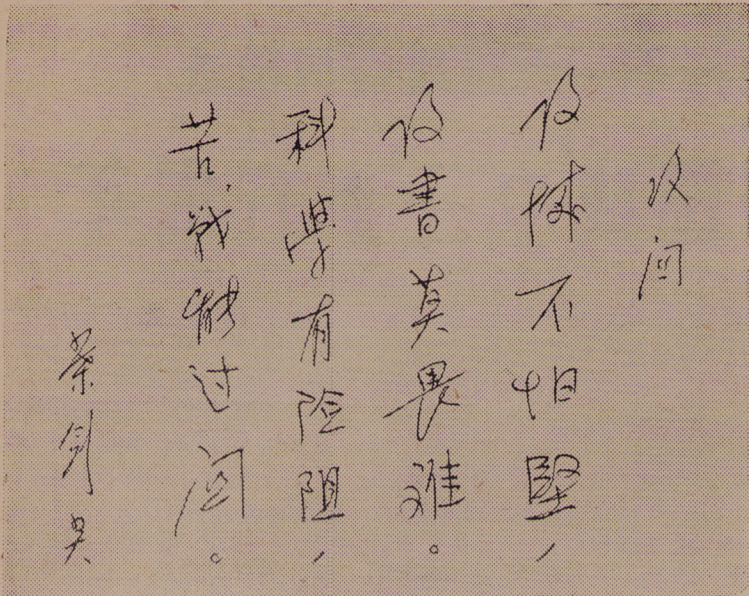 攻关
攻城不怕坚，
攻书莫畏难。
科学有险阻，
苦战能过关。
叶剑英